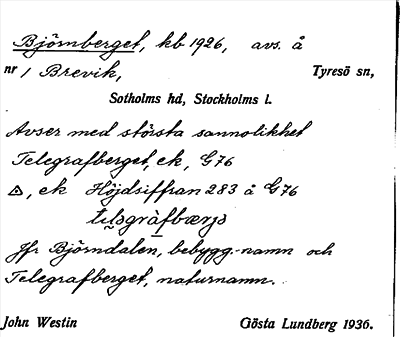 Björnberget, kb 1926, avs. å
nr 1 Brevik, Tyresö sn,
Sotholms hd, Stockholms l.
Avser med största sannolikhet
Telegrafberget, ek, G76
, ek Höjdsiffran 283 å G76
Jfr Björndalen, bebygg.-namn och
Telegrafberget, naturnamn.
John Westin Gösta Lundberg 1936.